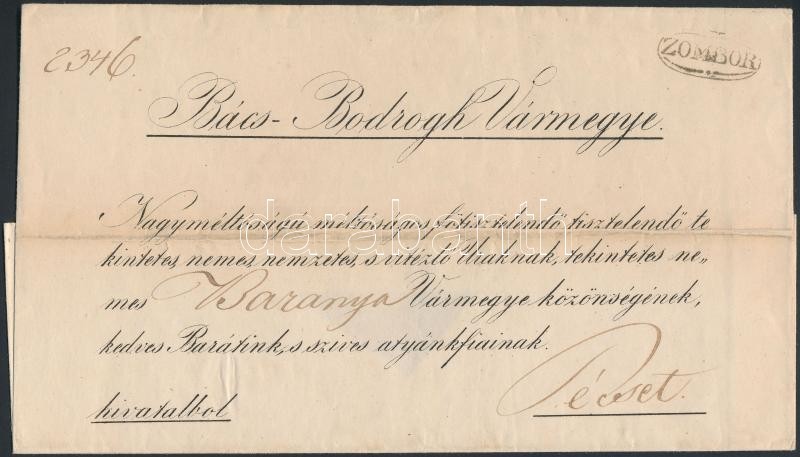 2346.
ZOMBOR
Bács-Bodrogh Vármegye.
Nagyméltóságú méltóságos, főtisztelendő tisztelendő te
kintetes, nemes, nemzetes, s vitézlő Uraknak, tekintetes ne„
mes Baranya Vármegye közönségének,
kedves Barátink, s szives atyánkfiainak.
hivatalbol
Pécset.
darabanth